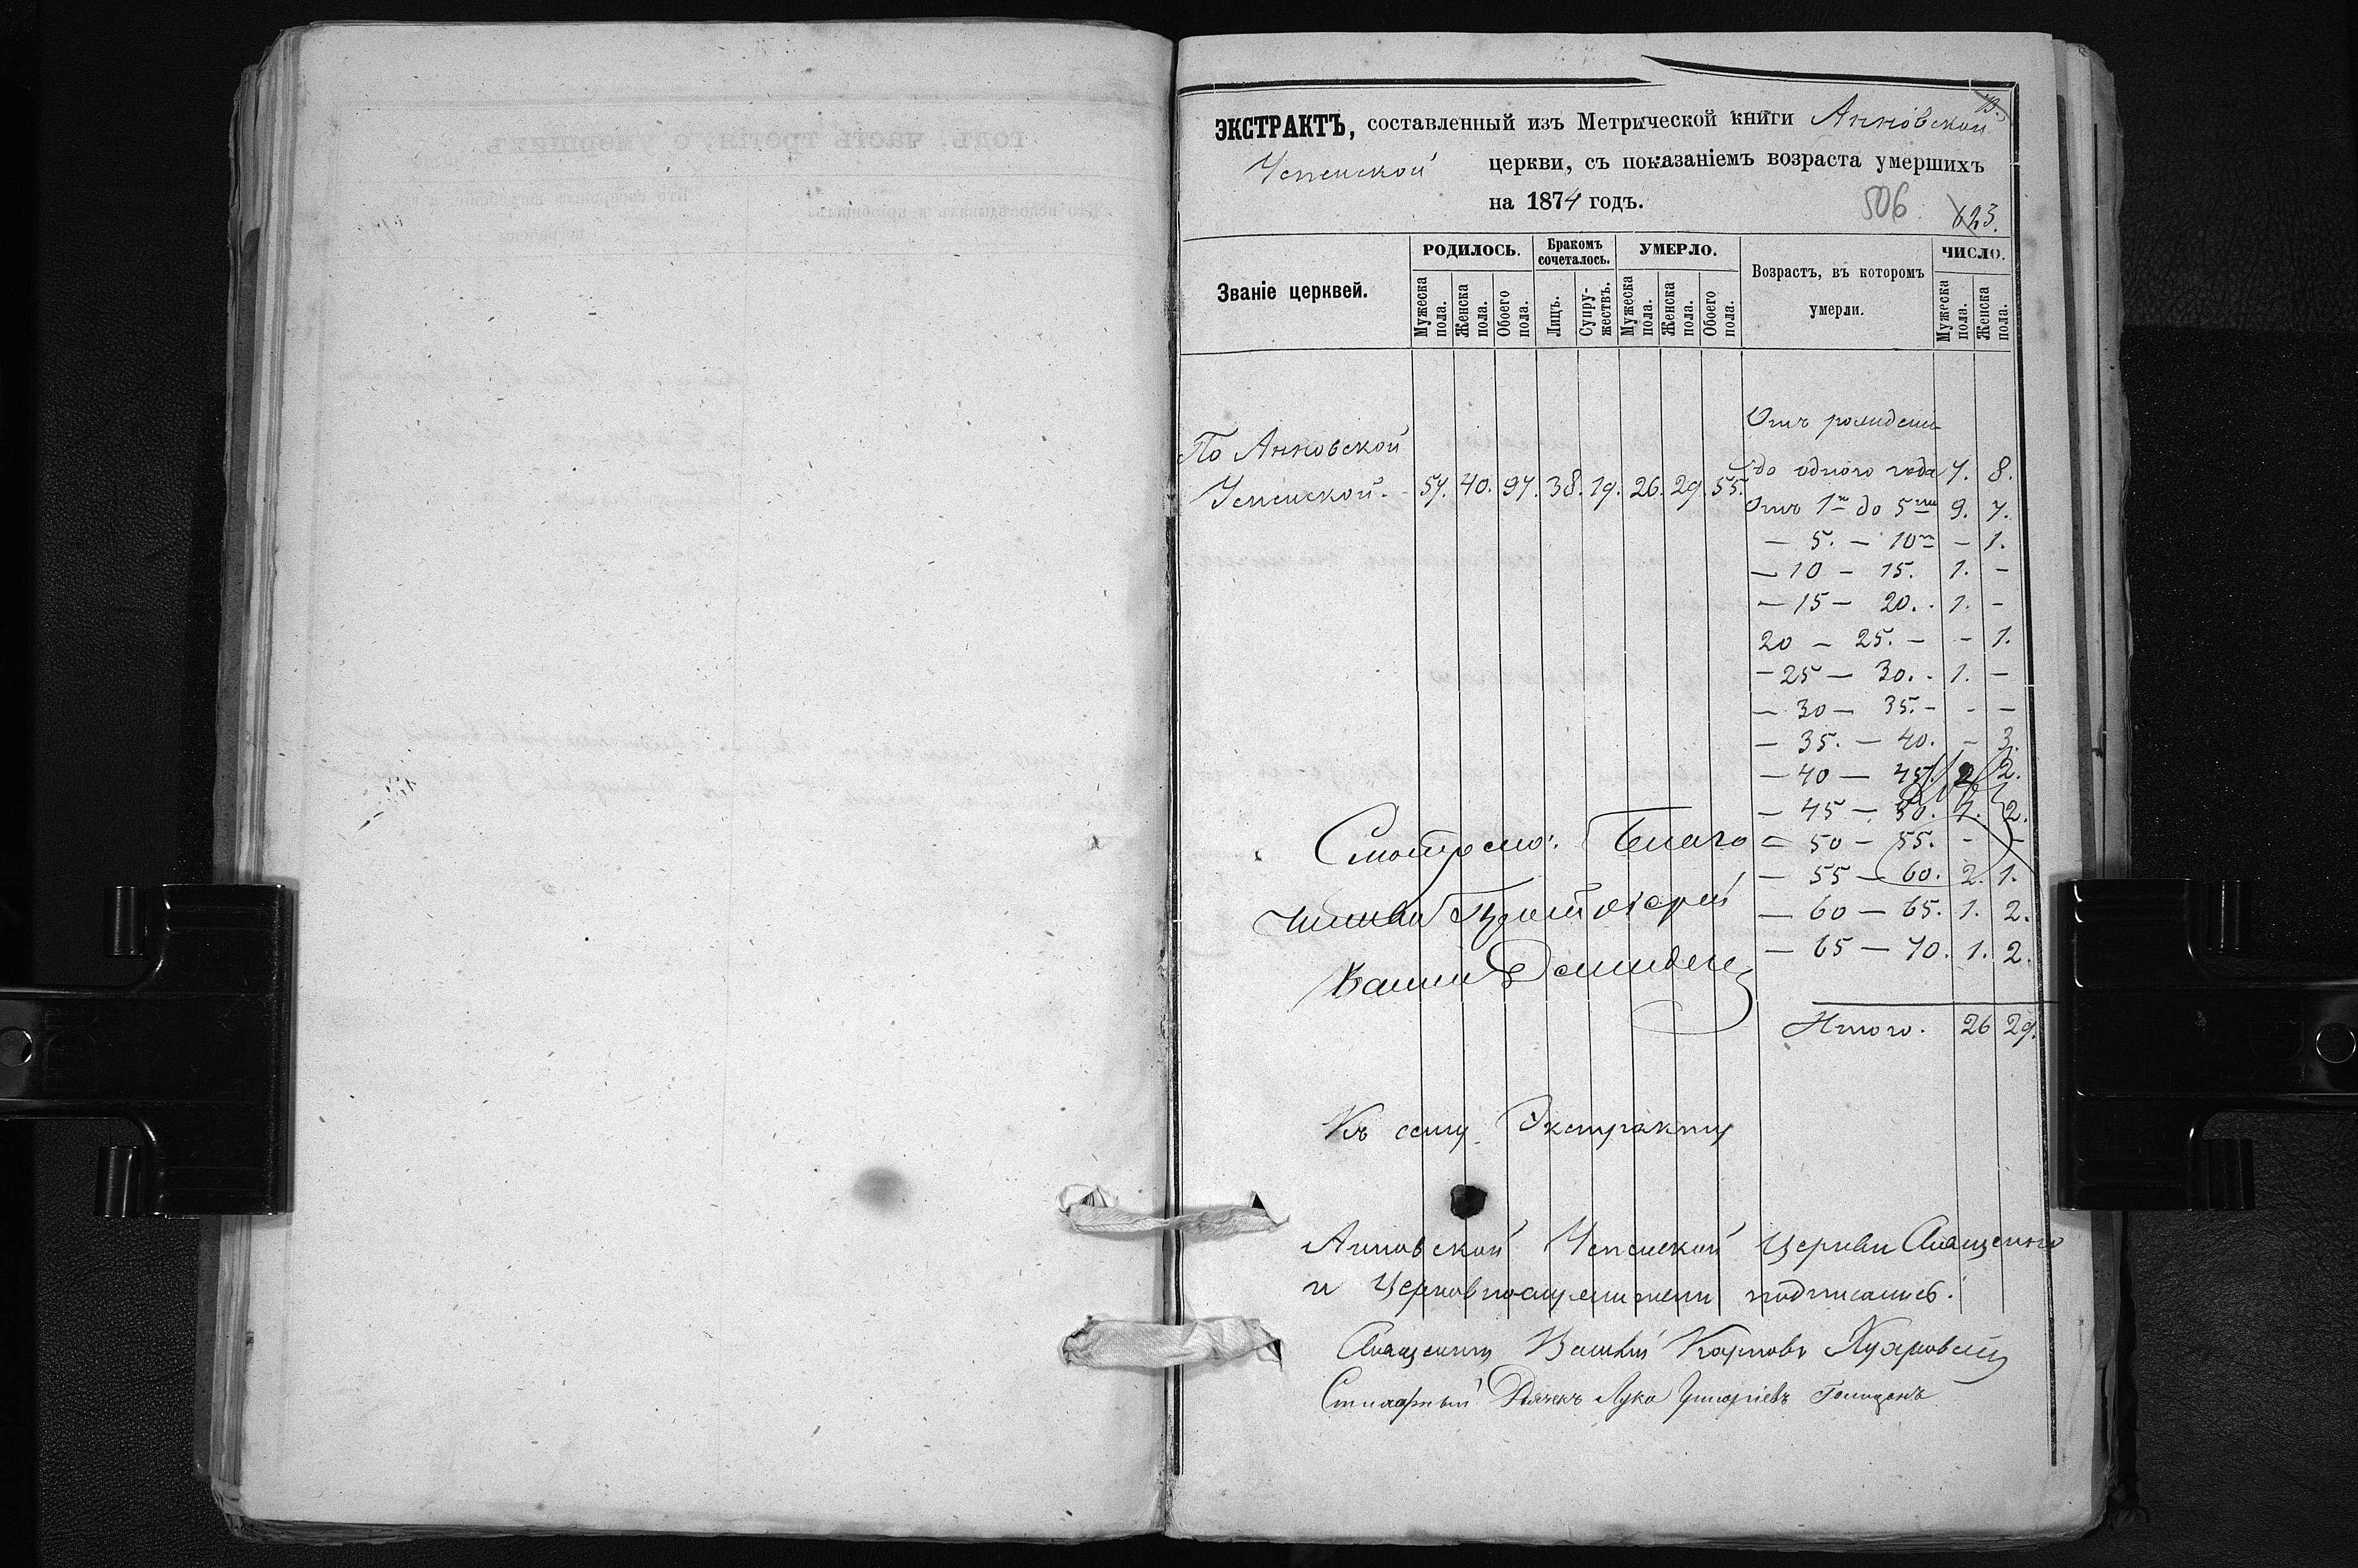 ЭКСТРАКТЪ, составленный изъ Метрической книги Анновской
Успенской церкви, съ показаніемъ возраста умершихъ
на 1874 годъ.
506 623.
Званіе церквей.
РОДИЛОСЬ.
Мужеска пола.
Женска пола.
Обоего пола.
Бракомъ сочеталось.
Лицъ.
Супружествъ.
УМЕРЛО.
Мужеска пола.
Женска пола.
Обоего пола.
Возрастъ, въ которомъ
умерли.
ЧИСЛО.
Мужеска пола.
Женска пола.
По Анновской
Успенской. 57. 40. 97. 38. 19. 26. 29. 55.
Отъ рожденія
до одного года 7. 8.
Отъ 1 до 5 9. 7.
— 5. — 10 — 1.
— 10 — 15. 1. —
— 15 — 20. 1. —
20 — 25. — — 1.
— 25 — 30. 1. —
— 30 — 35. — — —
— 35. — 40. — 3.
— 40 — 45. 2. 2.
— 45 — 50. 1. 2.
— 50 — 55. — —
— 55 — 60. 2. 1.
— 60 — 65. 1. 2.
— 65 — 70. 1. 2.
Итого. 26 29.
Смотрелъ: Благо
чинный Протоіерей
Къ сему Экстракту
Анновской Успенской Церкви Священно
и Церковнослужители подписались.
Священникъ Василій Карповъ
Стихарный Дячекъ Лука Григоріевъ